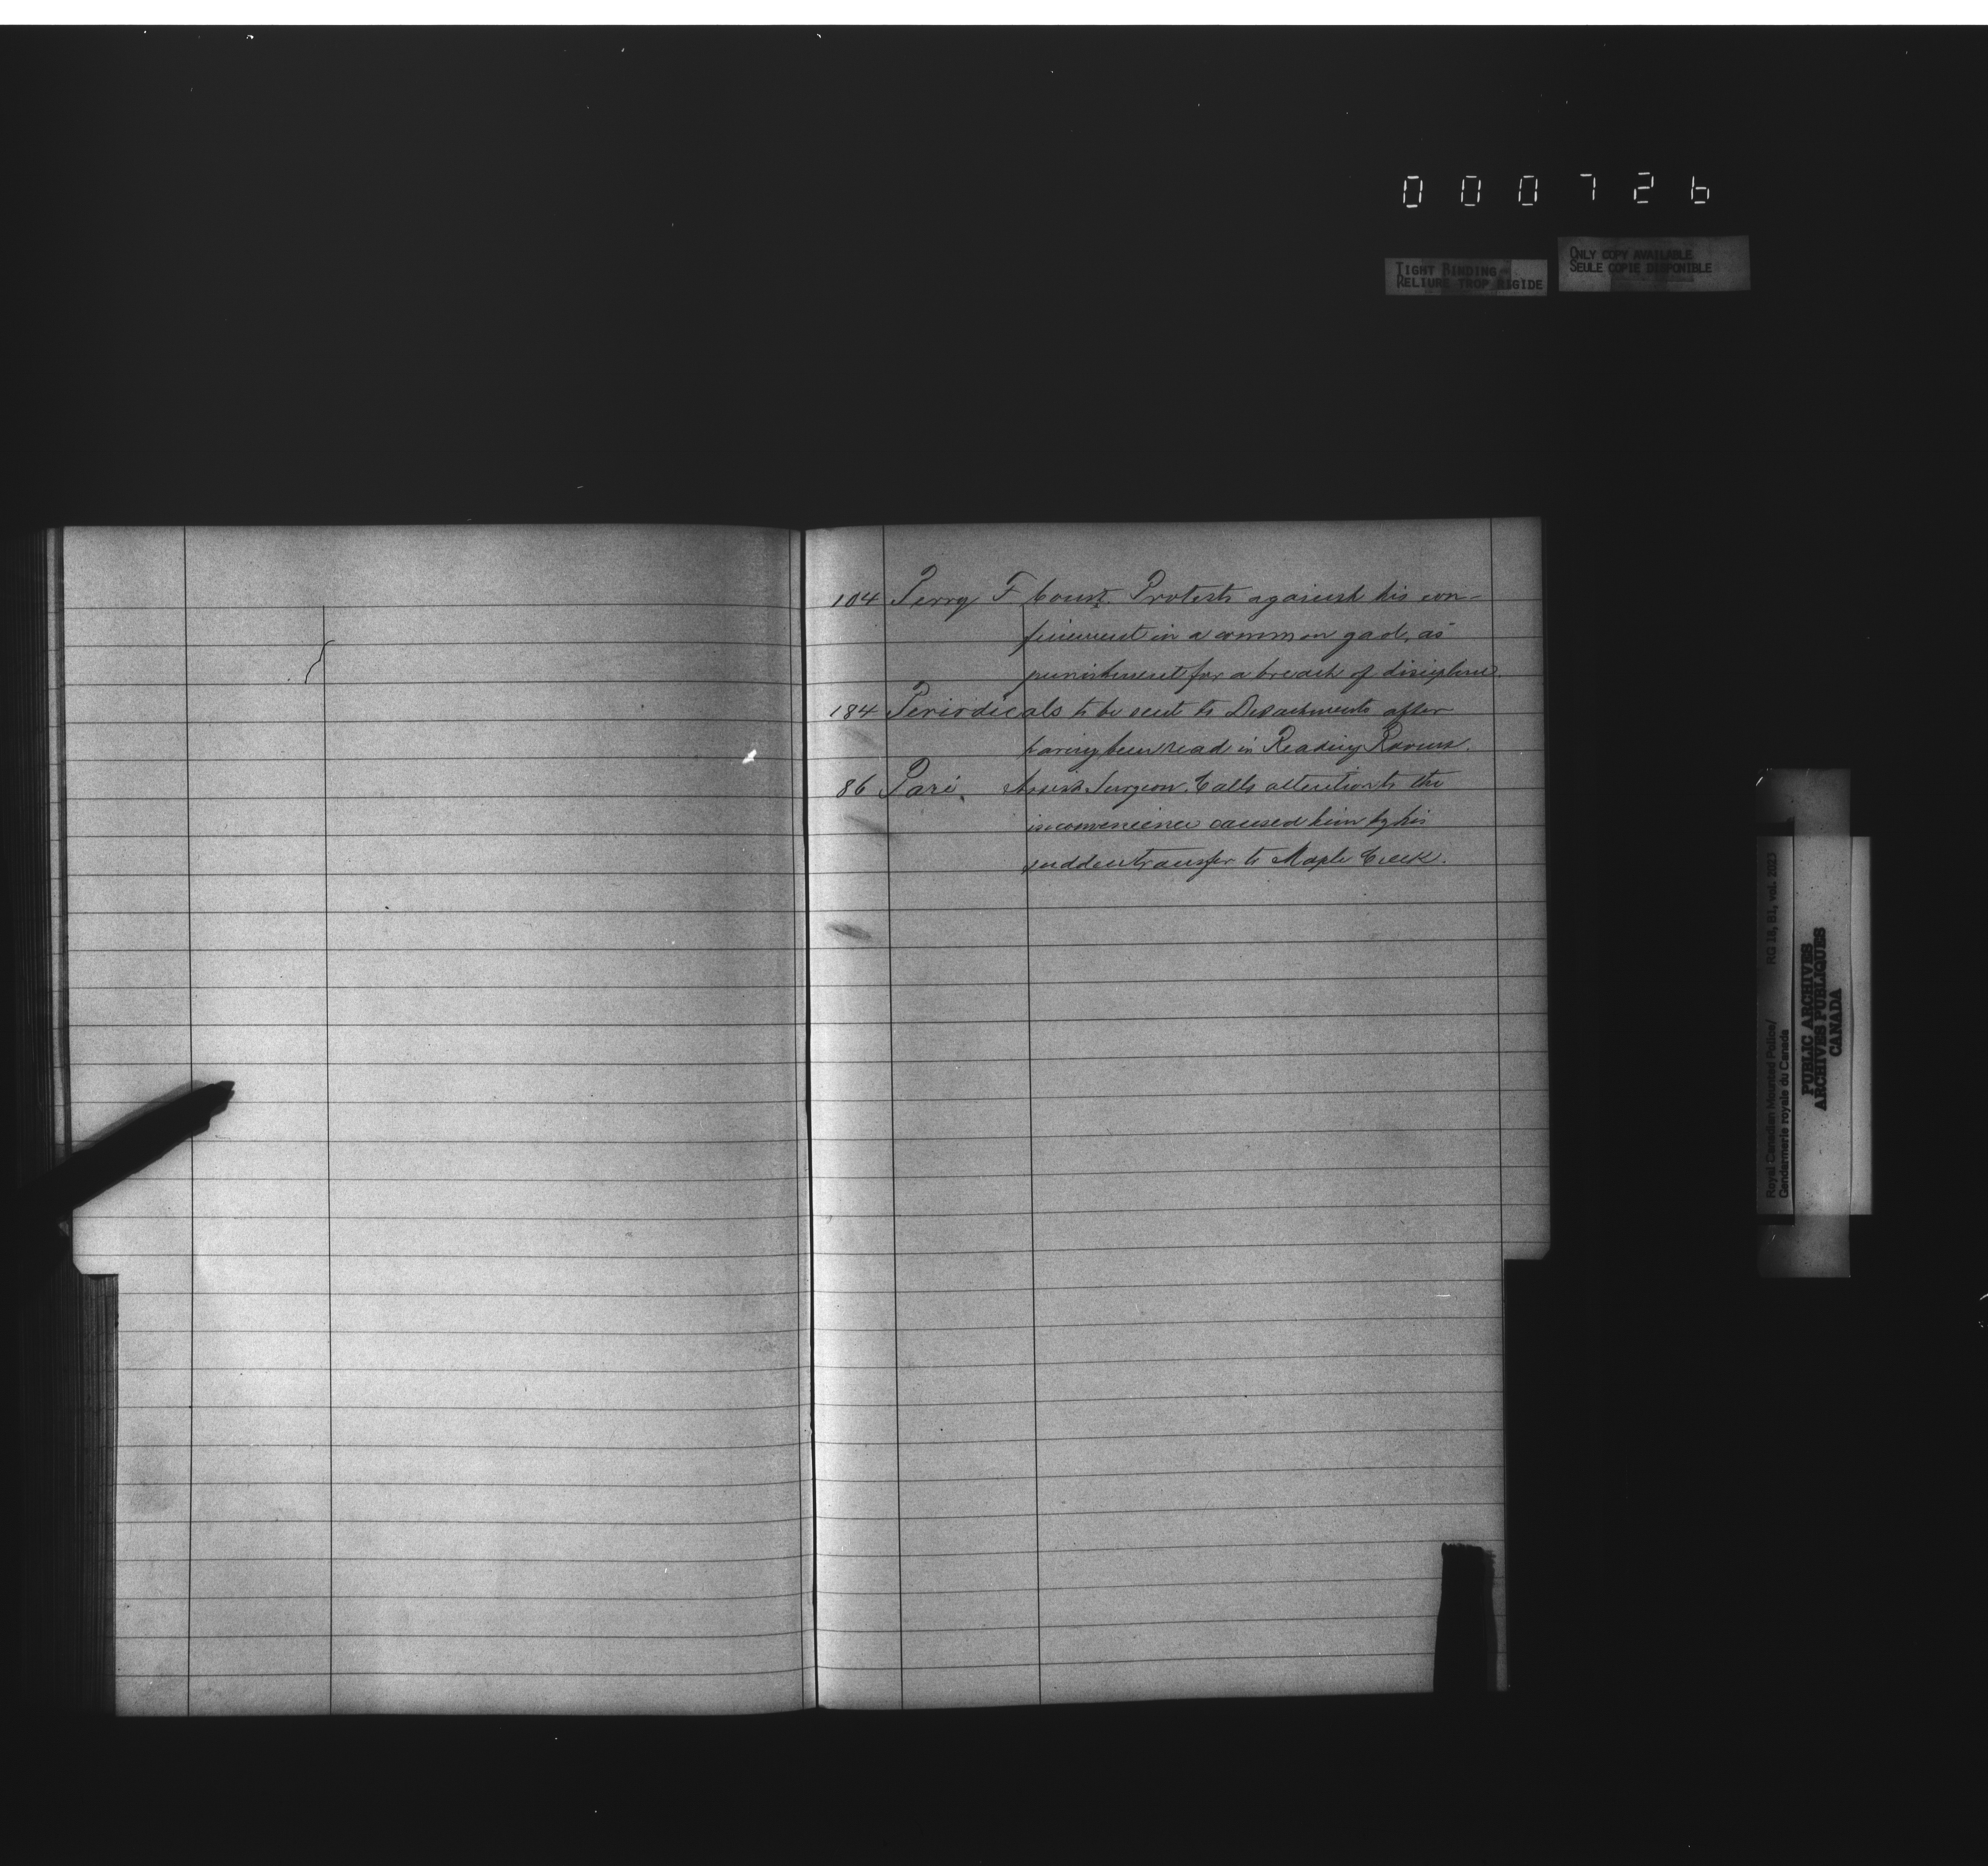 000726
TIGHT BINDING
RELIURE TROP RIGIDE
ONLY COPY AVAILABLE
SEULE COPIE DISPONIBLE
104 Perry F Const. Protests against his con-
finement in a common gaol, as
punishment for a breach of discipline.
184 Periodicals to be sent to Detachments after
having been read in Reading Rooms.
86 Paré. Assist Surgeon. Calls attention to the
inconvenience caused him by his
sudden transfer to Maple Creek.
Royal Canadian Mounted Police/ RG 18, B1, vol. 2023
Gendarmerie royale du Canada
PUBLIC ARCHIVES
ARCHIVES PUBLIQUES
CANADA